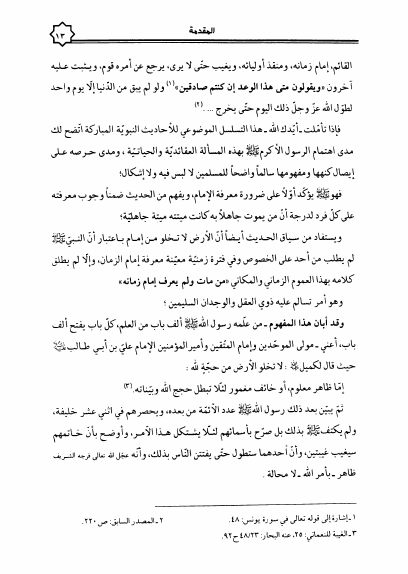 المقدمة
١٣
القائم، إمام زمانه، ومنقذ أوليائه، ويغيب حتّى لا يرى، يرجع عن أمره قوم، ويثبت عليه
آخرون «ويقولون متى هذا الوعد إن كنتم صادقين»(١) ولو لم يبق من الدّنيا إلّا يوم واحد
لطوّل الله عزّ وجلّ ذلك اليوم حتّى يخرج ....(٢)
فإذا تأمّلت ـ أيّدك الله ـ هذا التسلسل الموضوعي للأحاديث النبويّة المباركة اتّضح لك
مدى اهتمام الرسول الأكرم ﷺ بهذه المسألة العقائديّة والحياتيّة، ومدى حرصه على
إيصال كنهها ومفهومها سالماً واضحاً للمسلمين لا لبس فيه ولا إشكال؛
فهو ﷺ يؤكّد أوّلاً على ضرورة معرفة الإمام، ويفهم من الحديث ضمناً وجوب معرفته
على كلّ فرد لدرجة أنّ من يموت جاهلاً به كانت ميتته ميتة جاهليّة؛
ويستفاد من سياق الحديث أيضاً أنّ الأرض لا تخلو من إمام باعتبار أنّ النبيّ ﷺ
لم يطلب من أحد على الخصوص وفي فترة زمنيّة معيّنة معرفة إمام الزمان، وإلّا لم يطلق
كلامه بهذا العموم الزماني والمكاني «من مات ولم يعرف إمام زمانه»
وهو أمر تسالم عليه ذوي العقل والوجدان السليمين؛
وقد أبان هذا المفهوم ـ من علّمه رسول الله ﷺ ألف باب من العلم، كلّ باب يفتح ألف
باب، أعني ـ مولى الموحّدين وإمام المتّقين وأمير المؤمنين الإمام عليّ بن أبي طالب
حيث قال لكميل : لا تخلو الأرض من حجّة لله :
إمّا ظاهر معلوم، أو خائف مغمور لئلّا تبطل حجج الله وبيّناته.(٣)
ثمّ يبيّن بعد ذلك رسول الله ﷺ عدد الأئمّة من بعده، ويحصرهم في اثني عشر خليفة،
ولم يكتف ﷺ بذلك بل صرّح بأسمائهم لئلّا يشتكل هذا الأمر، وأوضح بأنّ خاتمهم
سيغيب غيبتين، وأنّ أحدهما ستطول حتّى يفتتن النّاس بذلك، وأنّه عجّل الله تعالى فرجه الشريف
ظاهر ـ بأمر الله ـ لا محالة .
١ ـ إشارة إلى قوله تعالى في سورة يونس: ٤٨.
٢ ـ المصدر السابق: ص ٢٢٠.
٣ ـ الغيبة للنعماني: ٢٥، عنه البحار: ٤٨/٢٣ ح ٩٢.